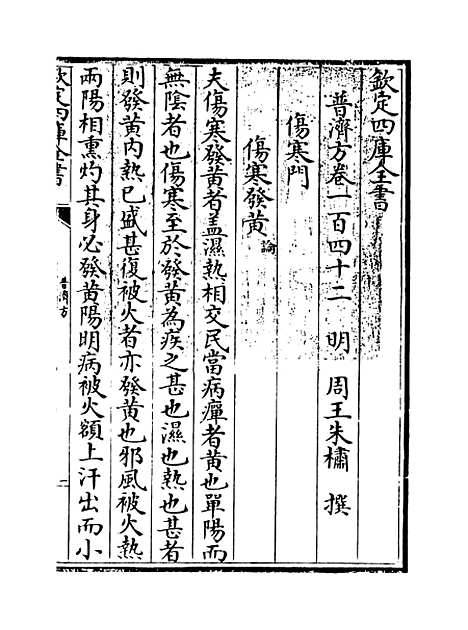 欽定四庫全書
普濟方卷一百四十二　明　周王朱橚　撰
傷寒門
傷寒發黃論
夫傷寒發黃者盖濕熱相交民當病癉者黃也單陽而
無陰者也傷寒至於發黃為疾之甚也濕也熱也甚者
則發黃内熱已盛甚復被火者亦發黃也邪風被火熱
兩陽相熏灼其身必發黃陽明病被火額上汗出而小
欽定四庫全書
普濟方